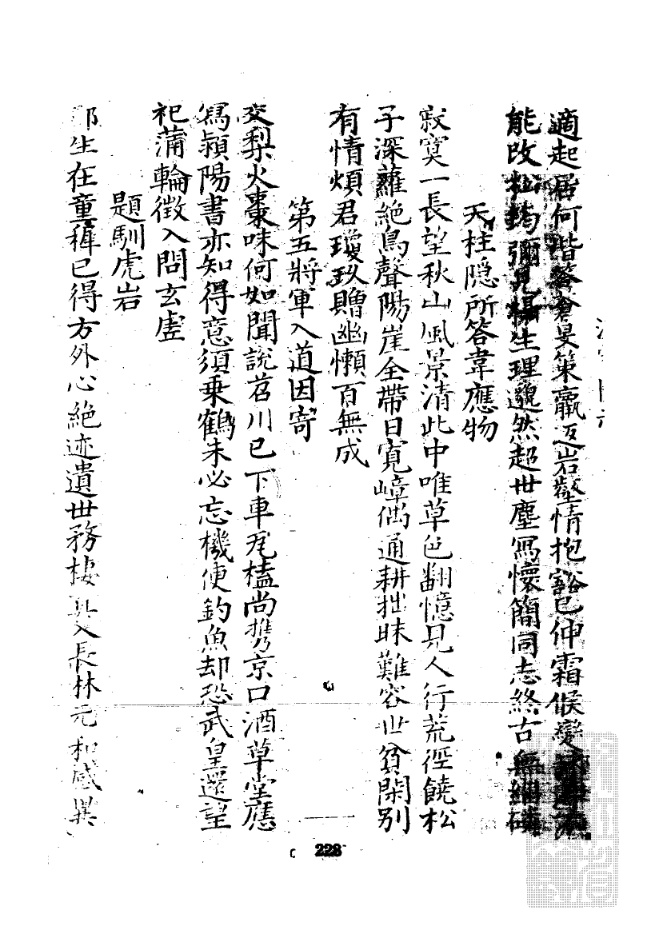 適起居何偕答倉旻策羸返岩壑情抱豁已伸霜候變
能改松筠彌見楊生理邈然超世塵寫懷簡同志終古無緇磷
天柱隐所答韋應物
寂寞一長望秋山風景清此中唯草色翻憶見人行荒徑饒松
子深蘿絶鳥聲陽崖全帶日寛嶂偶通耕拙昧難容世貧閑別
有情煩君瓊玖贈幽懶百無成
第五將軍入道因寄
交梨火棗味何如聞說苕川已下車瓦榼尚携京口酒草堂應
寫頴陽書亦知得意須乗鶴未必忘機便釣魚却恐武皇還望
祀蒲輪徵入問玄虗
題馴虎岩
生在童穉已得方外心絶迹遺世務棲真入長林元和感異
228